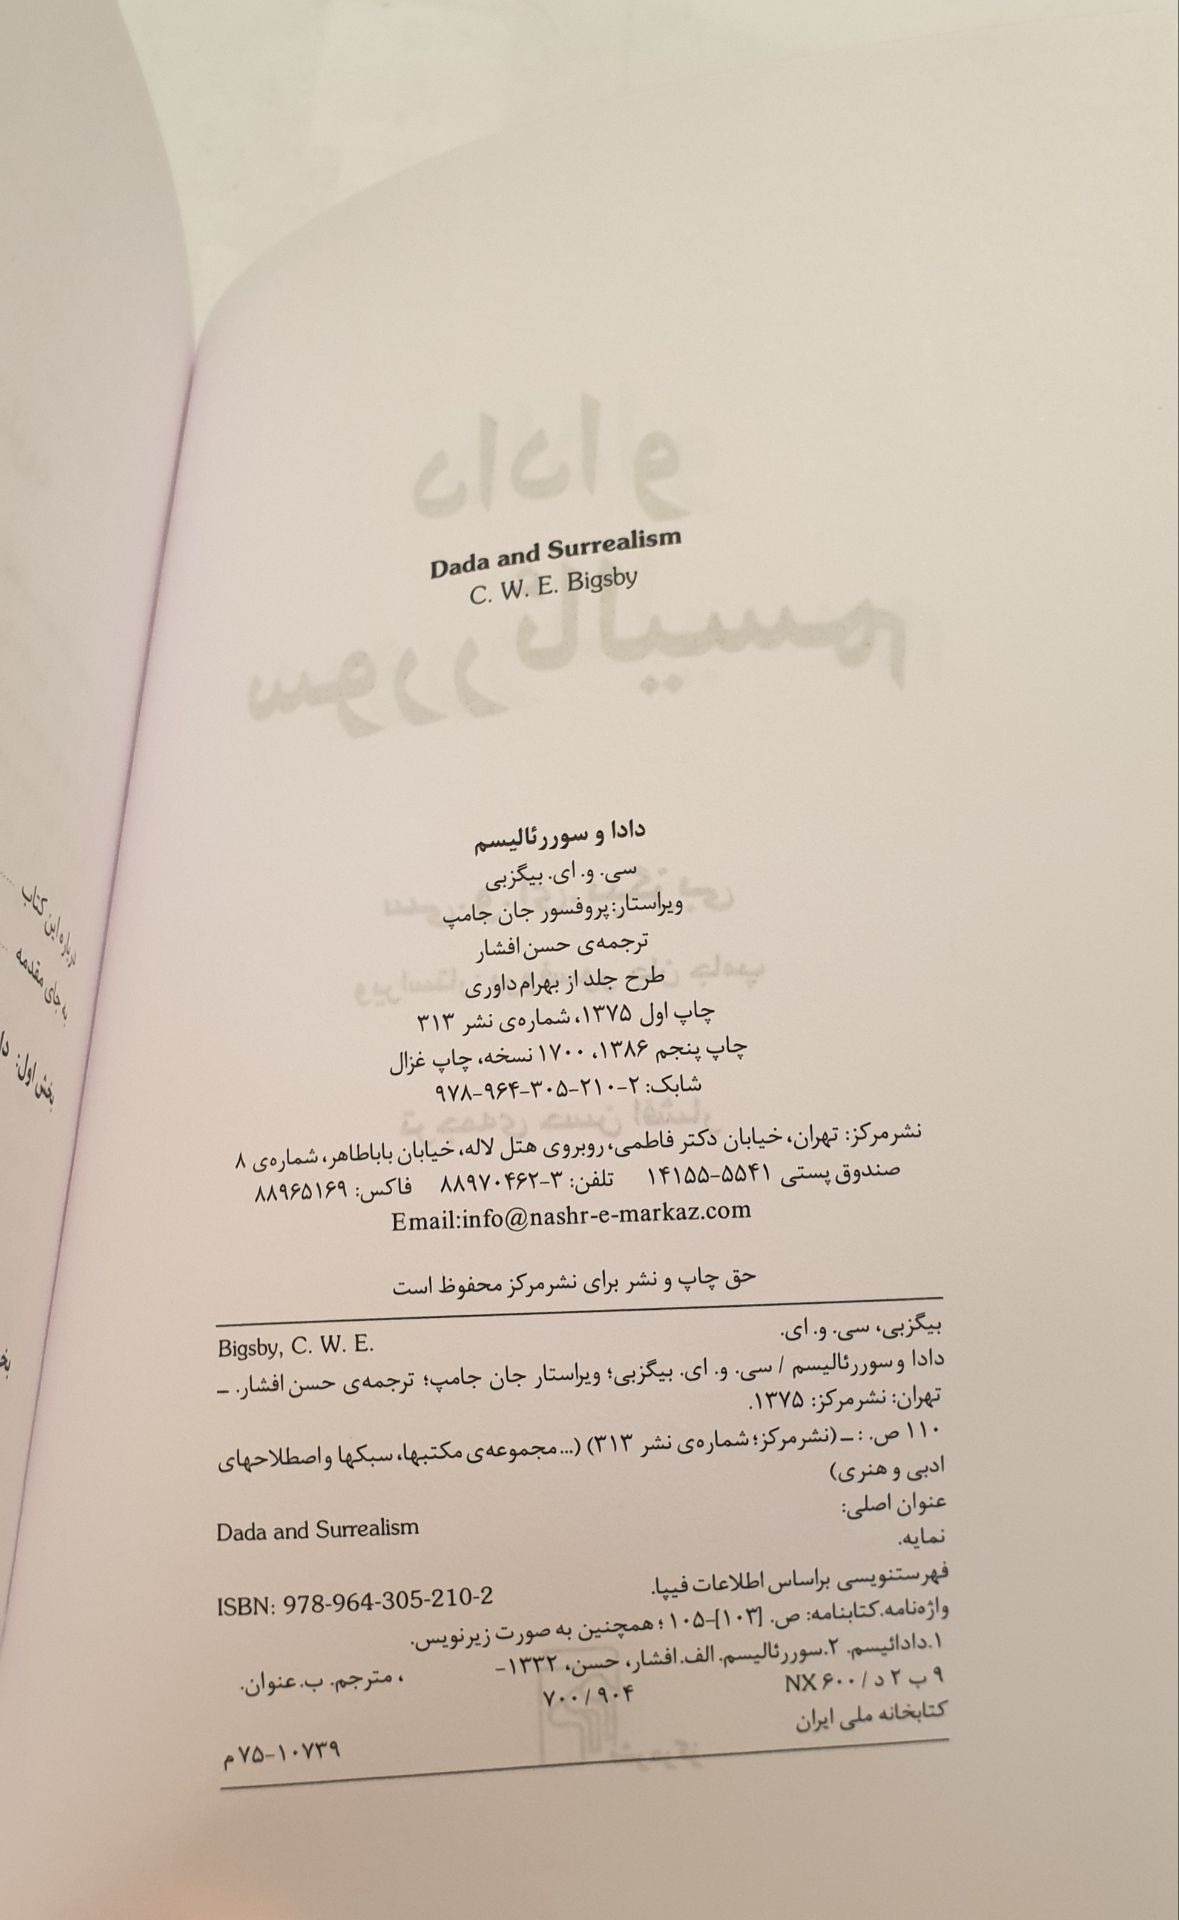 Dada and Surrealism
C. W. E. Bigsby
دادا و سوررئالیسم
سی. و. ای. بیگزبی
ویراستار: پروفسور جان جامپ
ترجمه‌ی حسن افشار
طرح جلد از بهرام داوری
چاپ اول ۱۳۷۵، شماره‌ی نشر ۳۱۳
چاپ پنجم ۱۳۸۶، ۱۷۰۰ نسخه، چاپ غزال
شابک: ۲-۲۱۰-۳۰۵-۹۶۴-۹۷۸
نشرمرکز: تهران، خیابان دکتر فاطمی، روبروی هتل لاله، خیابان باباطاهر، شماره‌ی ۸
صندوق پستی ۵۵۴۱-۱۴۱۵۵ تلفن: ۳-۸۸۹۷۰۴۶۲ فاکس: ۸۸۹۶۵۱۶۹
Email:info@nashr-e-markaz.com
حق چاپ و نشر برای نشرمرکز محفوظ است
بیگزبی، سی. و. ای. Bigsby, C. W. E.
دادا و سوررئالیسم / سی. و. ای. بیگزبی؛ ویراستار جان جامپ؛ ترجمه‌ی حسن افشار. ـ
تهران: نشرمرکز: ۱۳۷۵.
۱۱۰ ص. : ـ (نشرمرکز؛ شماره‌ی نشر ۳۱۳) (... مجموعه‌ی مکتبها، سبکها و اصطلاحهای
ادبی و هنری)
عنوان اصلی: Dada and Surrealism
نمایه.
فهرستنویسی براساس اطلاعات فیپا. ISBN: 978-964-305-210-2
واژه‌نامه.کتابنامه: ص. [۱۰۳]-۱۰۵ ؛ همچنین به صورت زیرنویس.
۱.دادائیسم. ۲.سوررئالیسم. الف.افشار، حسن، ۱۳۳۲- ، مترجم. ب.عنوان.
۹ ب ۲ د / ۶۰۰ NX ۷۰۰ / ۹۰۴
کتابخانه ملی ایران ۱۰۷۳۹-۷۵ م
درباره این کتاب
به جای مقدمه
بخش اول: